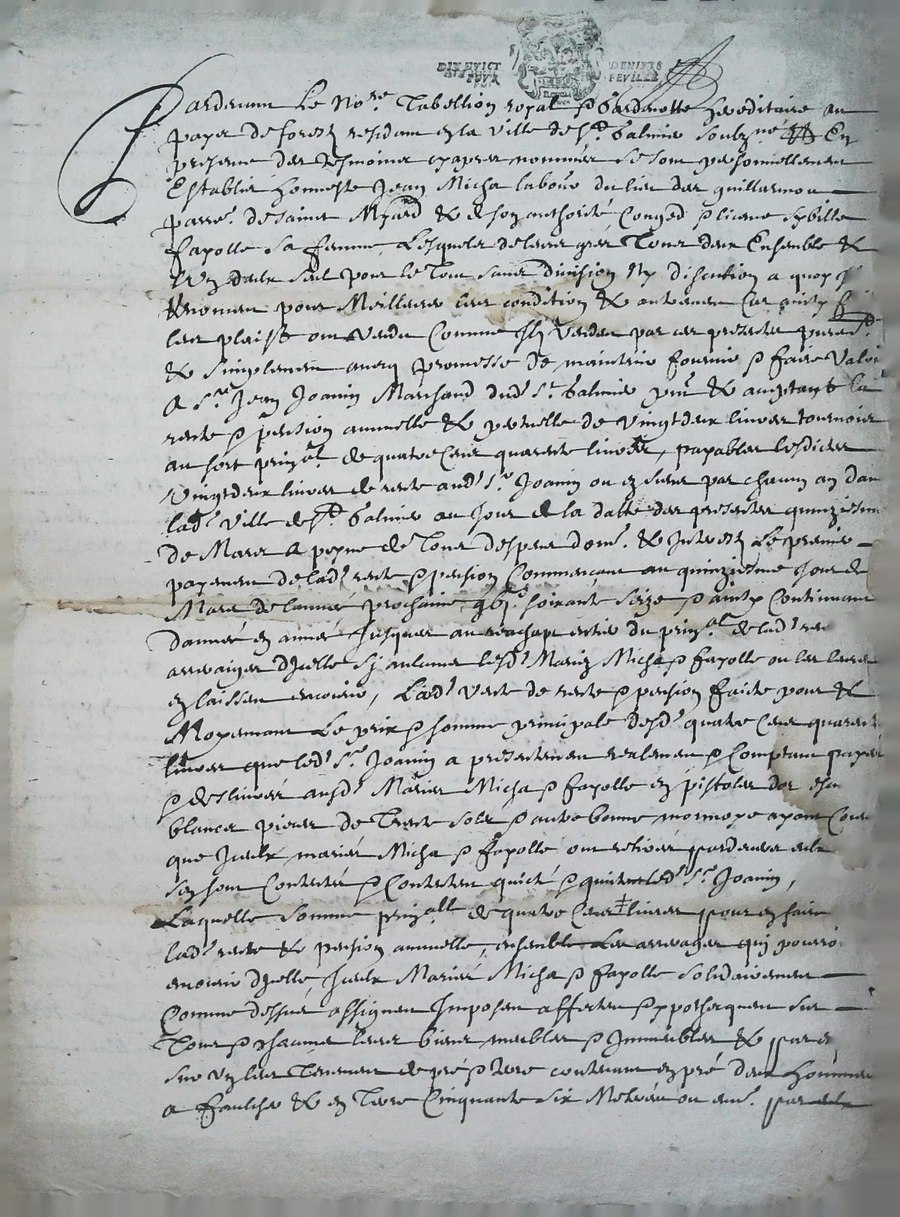 DIX HVICT DENIERS
FEVILLE
Pardevant Le No.re Tabellion royal & Gardenotte hereditaire au
payx de forestz residant en la ville de St Galmier soubz.né En
presence des tesmoins cyapres nommés se sont personnellement
Establis honneste Jean Micha labour. du lieu des guillarmou
parre. de sainct Myard & de son authorité Conged & licence sybille
fayolle sa femme Lesquels de leur gré Tous deux Ensemble &
Un deulx seul pour le Tout sans division ny discution a quoy
Renoncent pour Meilleurer leur condition & autrement Car ainsy
leur plaist ont Vendu Comme Ilz Vendent par ces presentes purem.
& simplement avecq promesse de maintenir fournir & faire Valoir
A Sr Jean Joanin Marchand dud. St Galmier pnt & acceptant La
rente & pention annuelle & perpetuelle de Vingtdeux livres tournois
au sort prinal de quatre Cens quarente livres, payables lesdictes
Vingtdeux livres de rente aud. Sr Joanin ou es siens par chacun an dans
lad. ville de St Galmier au Jour de la datte des presentes quinziesme
de Mars a peyne de Tous despens dom. & Interestz Le premier
payement de lad. rente & pension Commencant au quinziesme Jour de
Mars de lannee prochaine soixante seize & ainsy Continuant
dannée en année Jusques au reachapt entier du prinal de lad. rente
arreraiges dycelle sy aulcuns lesd. Mariez Micha & fayolle ou les leurs
en laissent encourir, Lad. vente de rente & pension faicte pour &
Moyennant Le prix & somme principale desd. quatre Cens quarente
livres que led. Sr Joanin a presentement realement & Comptant payées
& deslivrés ausd. Mariés Micha & fayolle en pistoles dor escus
blancs pieces de Trente solz & autre bonne monnoye ayant Cours
que Iceulx mariés Micha & fayolle ont retirés pardevers eulx
sen sont Contentés & Contentent quicté & quictent led. Sr Joanin,
Laquelle somme prinalle de quatre Cens livres pour en faire
lad. rente & pension annuelle, ensemble Les arrerages quy pourront
encourir dycelle, Iceulx Mariés Micha & fayolle solidairement
Comme dessus assignent Imposent affectent & ypothecquent sur
Tous & chacuns leurs biens meubles & Immeubles & par
sur Un leur Tenement de pré & terre contenant en pré deux hommes
a faulcher & en Terre Cinquante six Meterées ou env.